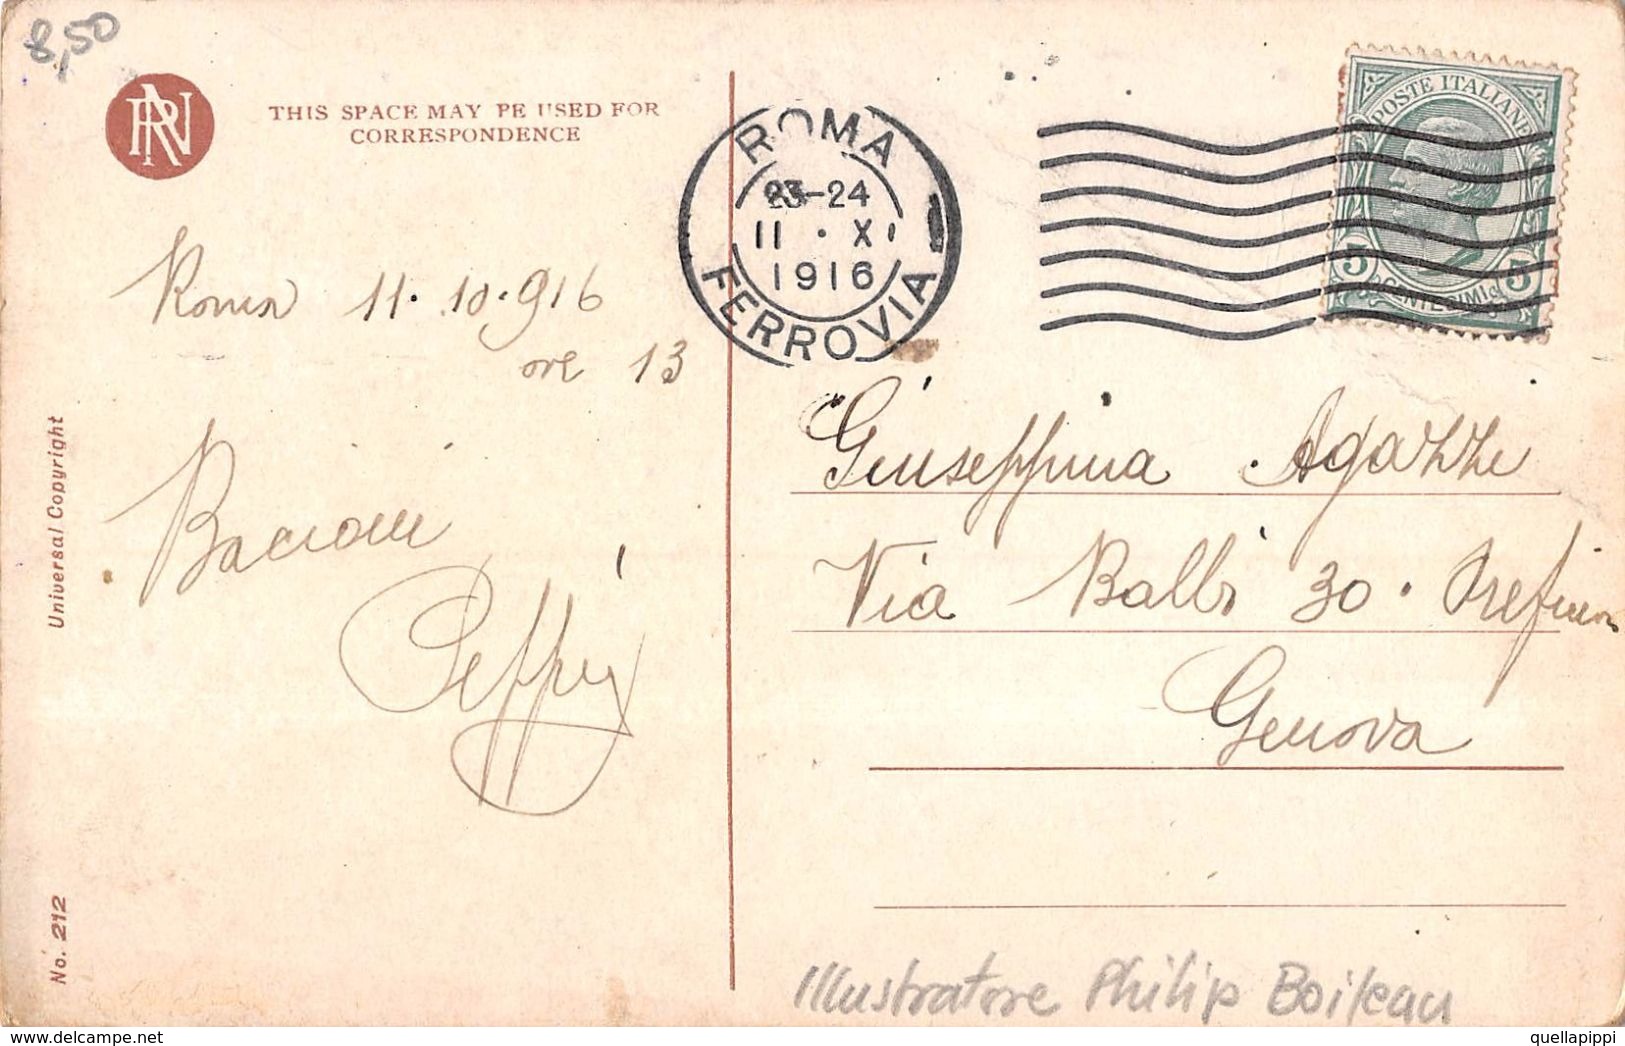 8,50
RN
THIS SPACE MAY BE USED FOR
CORRESPONDENCE
ROMA
23-24
11 · XI
1916
FERROVIA
POSTE ITALIANE
5 CENTESIMI 5
Roma 11. 10. 916
ore 13
Bacioni
Peppy
Giuseppina Agazzi
Via Balbi 30.
Genova
Universal Copyright
No. 212
Illustratore Philip Boileau
quellapippi